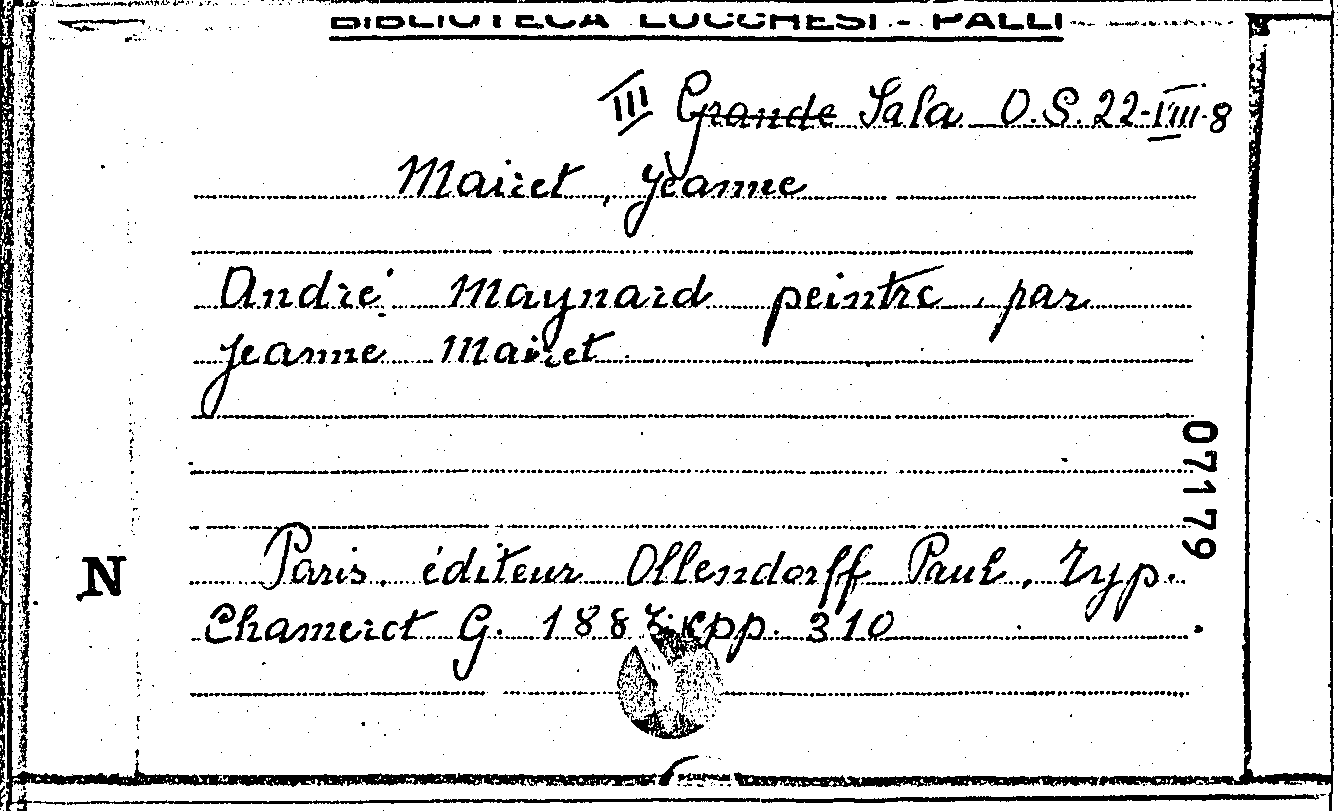 BIBLIOTECA LUCCHESI - PALLI
III Grande Sala O.S. 22-IIII-8
Mairet, Jeanne
André Maynard peintre, par
Jeanne Mairet
07179
Paris. éditeur Ollendorff Paul, Typ.
N
Chamerot G. 1887. pp. 310